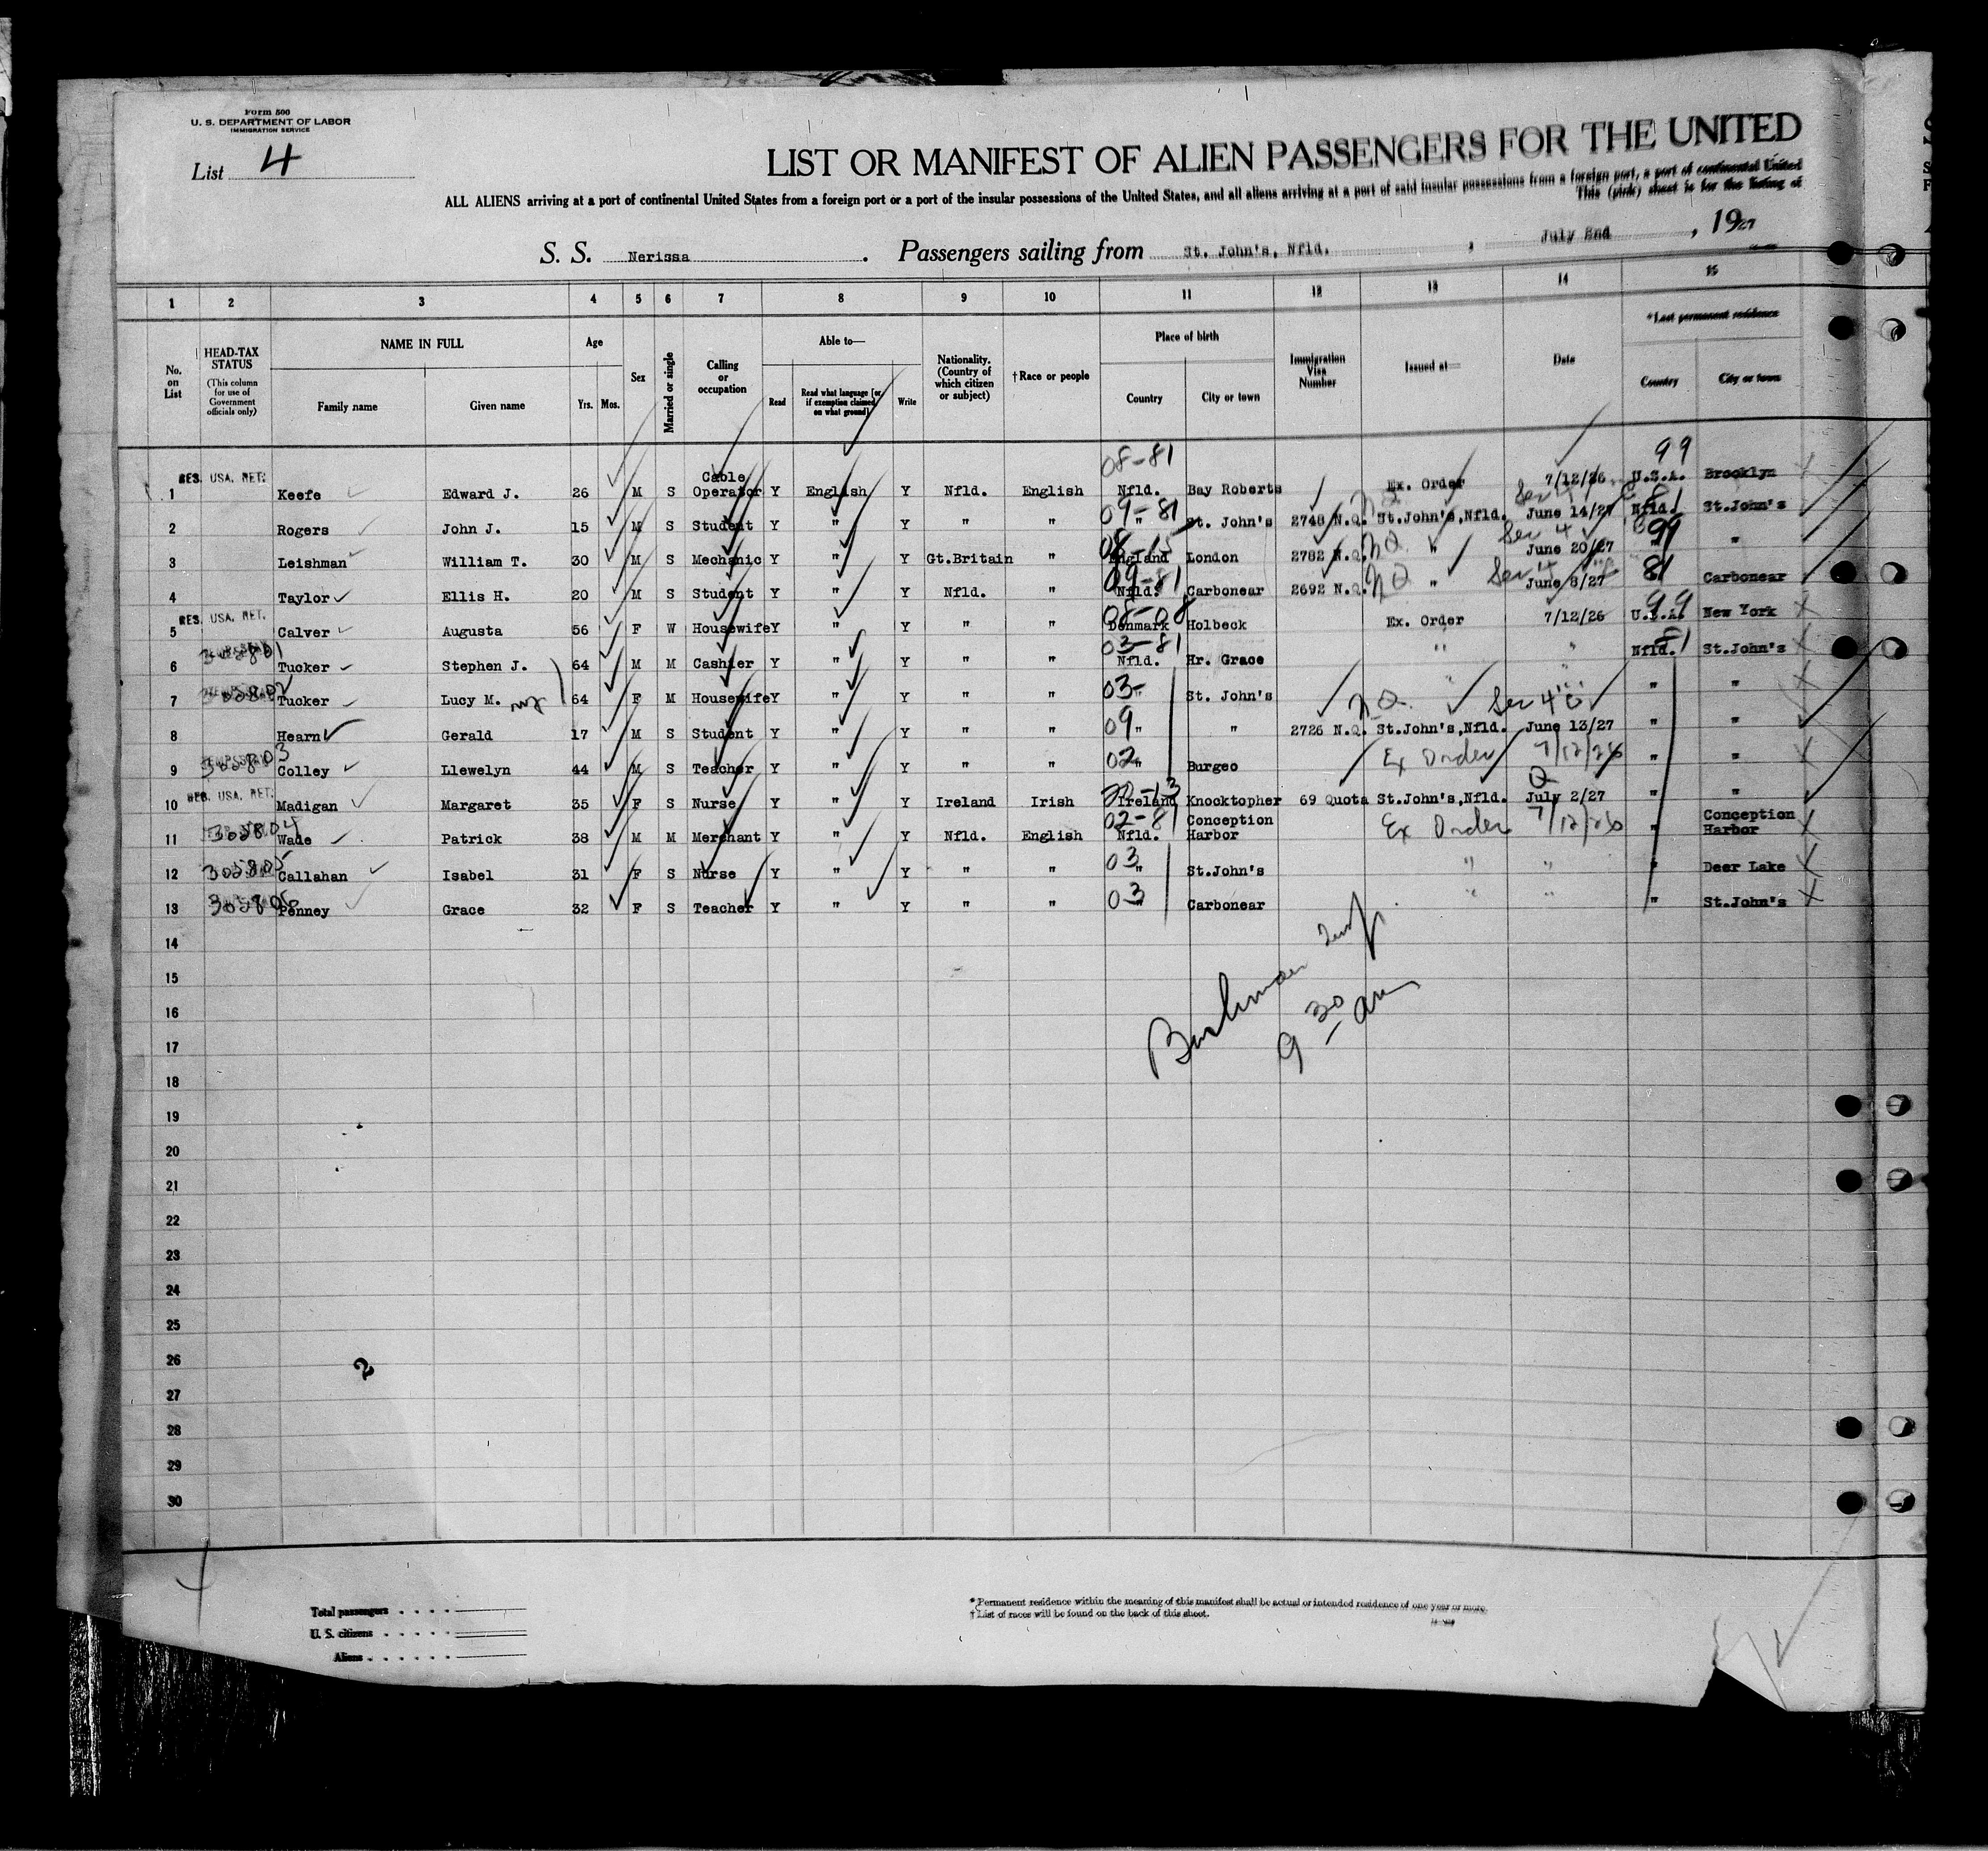 Form 500
U. S. DEPARTMENT OF LABOR
IMMIGRATION SERVICE
List 4
LIST OR MANIFEST OF ALIEN PASSENGERS FOR THE UNITED
ALL ALIENS arriving at a port of continental United States from a foreign port or a port of the insular possessions of the United States, and all aliens arriving at a port of said insular possessions from a foreign port, a port of continental United
This (pink) sheet is for the listing of
S. S. Nerissa. Passengers sailing from St. John's, Nfld., July 2nd, 1927
1 2 3 4 5 6 7 8 9 10 11 12 13 14 15
No. on List
HEAD-TAX STATUS (This column for use of Government officials only)
NAME IN FULL Family name Given name
Age Yrs. Mos.
Sex
Married or single
Calling or occupation
Able to— Read Read what language [or, if exemption claimed, on what ground] Write
Nationality. (Country of which citizen or subject)
†Race or people
Place of birth Country City or town
Immigration Visa Number
Issued at—
Date
*Last permanent residence Country City or town
1 RES. USA. RET. Keefe Edward J. 26 M S Cable Operator Y English Y Nfld. English 08-81 Nfld. Bay Roberts Ex. Order 7/12/26 99 U.S.A. Brooklyn
2 Rogers John J. 15 M S Student Y " Y " " 09-81 " St. John's 2748 N.Q. St.John's,Nfld. June 14/27 Nfld. 81 St.John's
3 Leishman William T. 30 M S Mechanic Y " Y Gt.Britain " England London 2782 N.Q. NQ " June 20/27 " "
4 Taylor Ellis H. 20 M S Student Y " Y Nfld. " 09-81 Nfld. Carbonear 2692 N.Q. NQ " June 8/27 81 Carbonear
5 RES. USA. RET. Calver Augusta 56 F W Housewife Y " Y " " 08-08 Denmark Holbeck Ex. Order 7/12/26 99 U.S.A. New York
6 305801 Tucker Stephen J. 64 M M Cashier Y " Y " " 03-81 Nfld. Hr. Grace " " Nfld. 81 St.John's
7 305802 Tucker Lucy M. 64 F M Housewife Y " Y " " 03- " St. John's " " " "
8 Hearn Gerald 17 M S Student Y " Y " " 09 " " 2726 N.Q. NQ St.John's,Nfld. June 13/27 " "
9 305803 Colley Llewelyn 44 M S Teacher Y " Y " " 02 " Burgeo Ex Order 7/12/26 " "
10 RES. USA. RET. Madigan Margaret 35 F S Nurse Y " Y Ireland Irish Ireland Knocktopher 69 Quota St.John's,Nfld. Q July 2/27 " "
11 305804 Wade Patrick 38 M M Merchant Y " Y Nfld. English 02-81 Nfld. Conception Harbor Ex Order 7/12/26 " Conception Harbor
12 305805 Callahan Isabel 31 F S Nurse Y " Y " " 03 " St.John's " " " Deer Lake
13 305806 Penney Grace 32 F S Teacher Y " Y " " 03 " Carbonear " " " St.John's
14
15
16
17
18
19
20
21
22
23
24
25
26
27
28
29
30
9 30 am
2
Total passengers
U. S. citizens
Aliens
* Permanent residence within the meaning of this manifest shall be actual or intended residence of one year or more.
† List of races will be found on the back of this sheet.